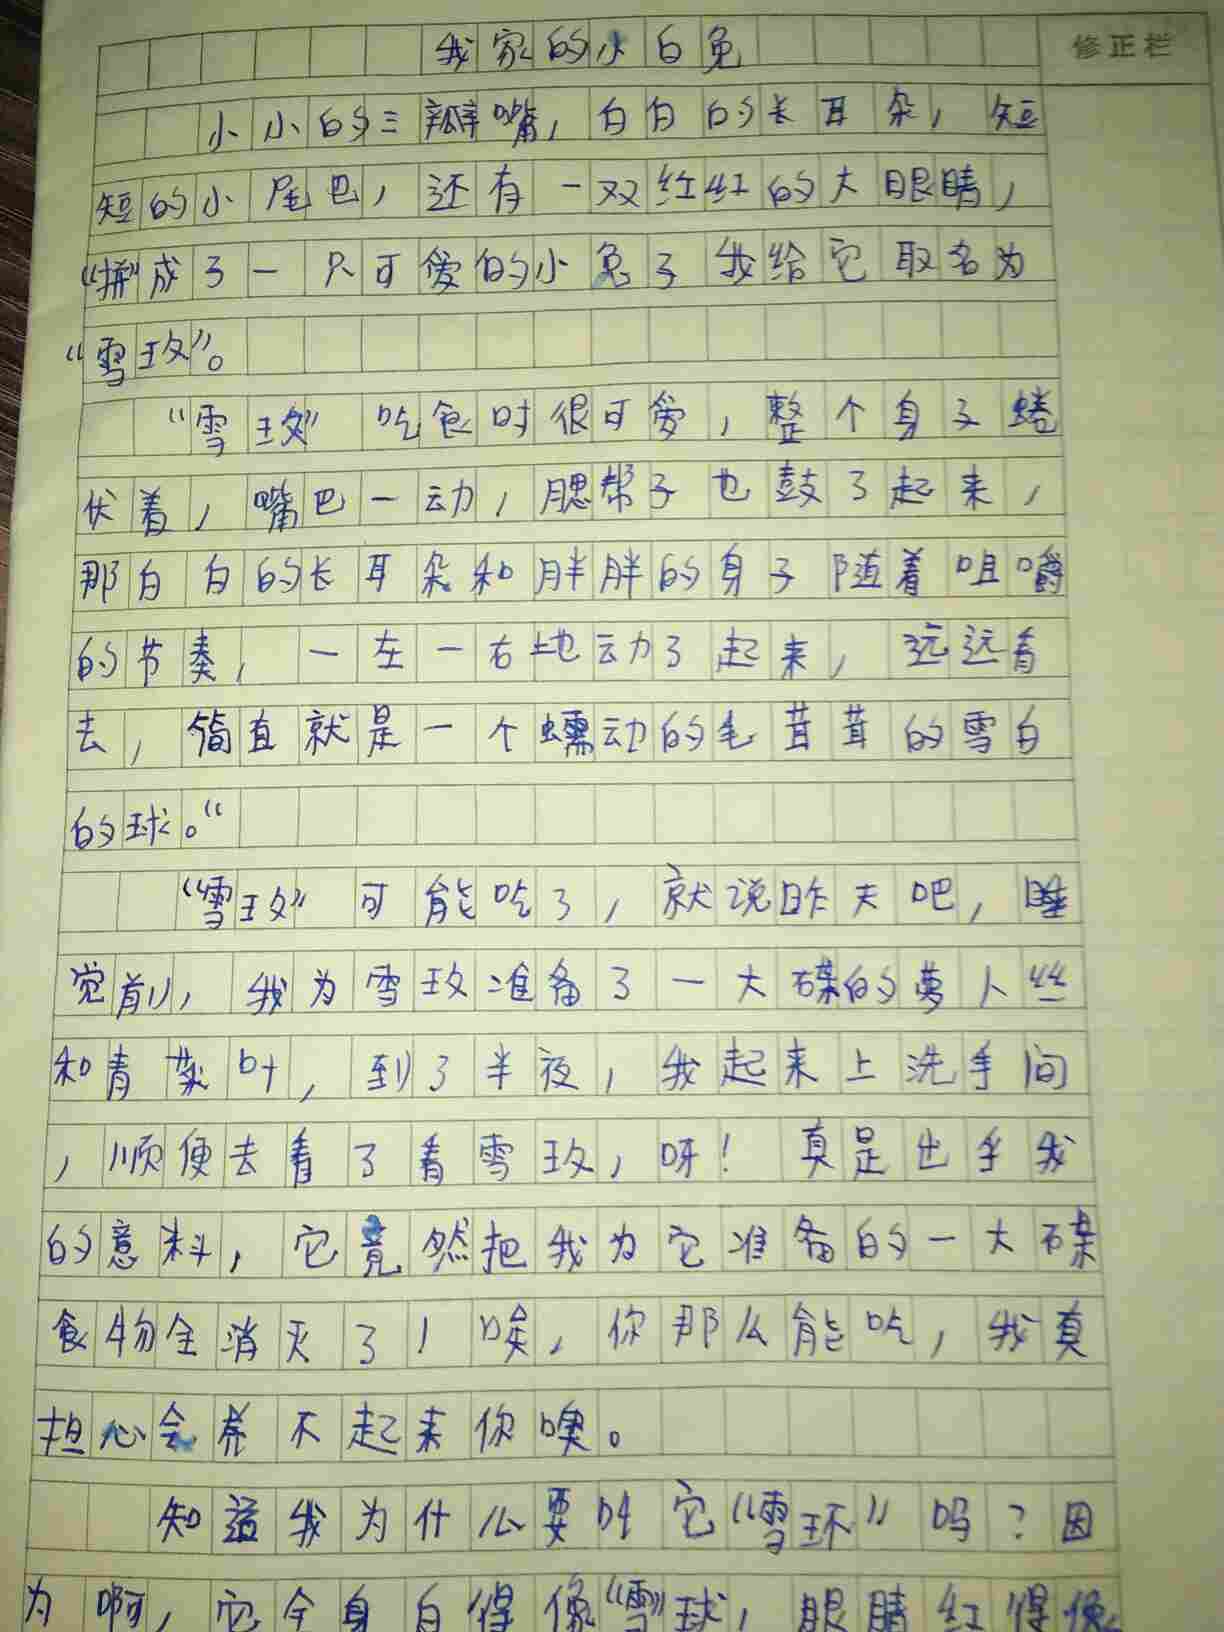 我家的小白兔
修正栏
小小的三瓣嘴，白白的长耳朵，短
短的小尾巴，还有一双红红的大眼睛，
“拼”成了一只可爱的小兔子我给它取名为
“雪玫”。
“雪玫”吃食时很可爱，整个身子蜷
伏着，嘴巴一动，腮帮子也鼓了起来，
那白白的长耳朵和胖胖的身子随着咀嚼
的节奏，一左一右地动了起来，远远看
去，简直就是一个蠕动的毛茸茸的雪白
的球。“
“雪玫”可能吃了，就说昨天吧，睡
觉前，我为雪玫准备了一大碟的萝卜丝
和青菜叶，到了半夜，我起来上洗手间
，顺便去看了看雪玫，呀！真是出乎我
的意料，它竟然把我为它准备的一大碟
食物全消灭了！唉，你那么能吃，我真
担心会养不起来你噢。
知道我为什么要叫它“雪环”吗？因
为啊，它全身白得像“雪”球，眼睛红得像